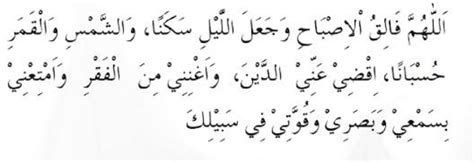 اَللّٰهُمَّ فَالِقُ الْاِصْبَاحِ وَجَعَلَ اللَّيْلِ سَكَنًا، وَالشَّمْسِ وَالْقَمَرِ
حُسْبَانًا، اِقْضِيْ عَنِّيْ الدَّيْنَ، وَاَغْنِنِيْ مِنَ الْفَقْرِ وَاَمْتِعْنِيْ
بِسَمْعِيْ وَبَصَرِيْ وَقُوَّتِيْ فِي سَبِيْلِكَ